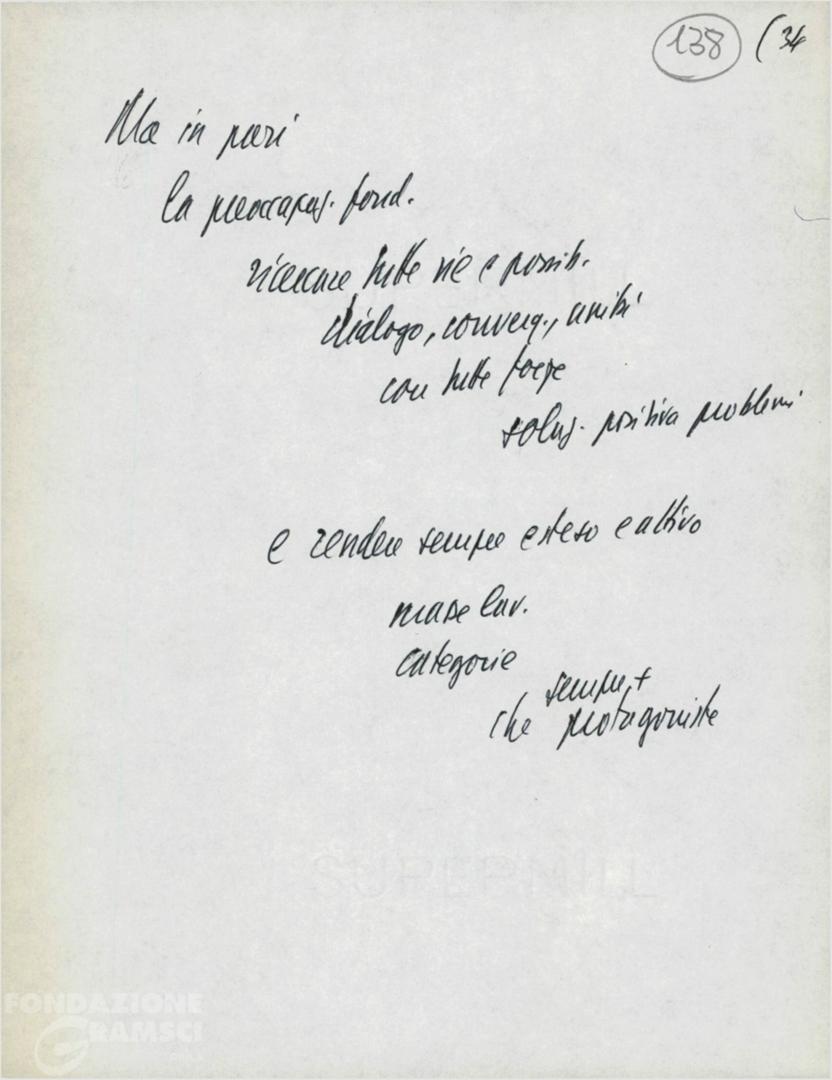 138 (34
Ma in pari
la preoccupaz. fond.
ricercare tutte vie e possib.
dialogo, converg., unità
con tutte forze
soluz. positiva problemi
e rendere sempre esteso e attivo
masse lav.
categorie
sempre +
che protagoniste
SUPERMILL
FONDAZIONE
GRAMSCI